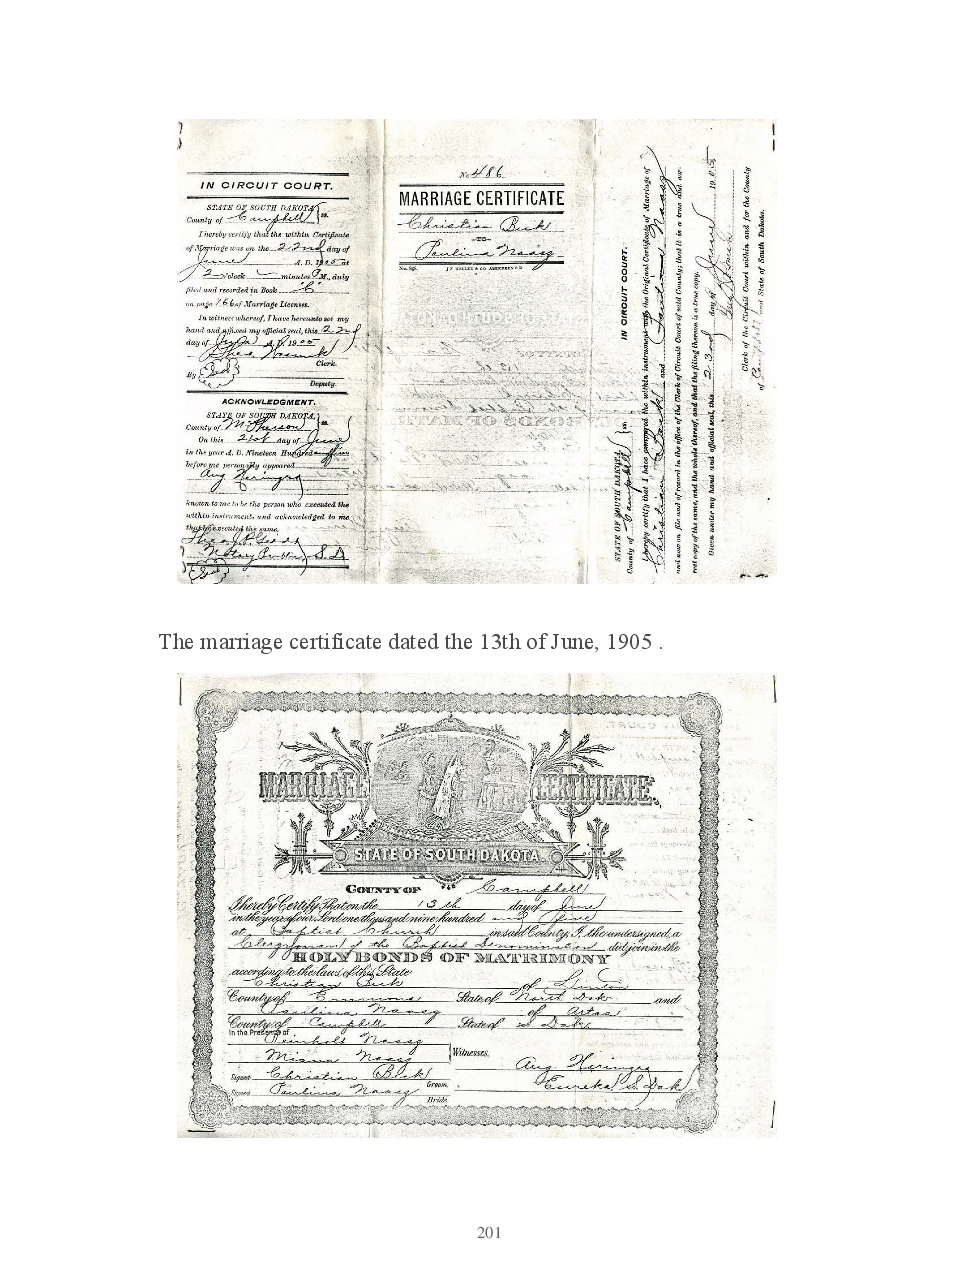 IN CIRCUIT COURT.
STATE OF SOUTH DAKOTA,
County of Campbell ss.
I hereby certify that the within Certificate
of Marriage was on the 22nd day of
June A. D. 1905 at
2 o'clock — minutes P M., duly
filed and recorded in Book "C"
on page 166 of Marriage Licenses.
In witness whereof, I have hereunto set my
hand and affixed my official seal, this 22nd
day of June A. D. 1905
Clerk.
Seal
By
Deputy.
ACKNOWLEDGMENT.
STATE OF SOUTH DAKOTA,
County of McPherson ss.
On this 21st day of June
in the year A. D. Nineteen Hundred and five
before me personally appeared
Aug Heringer
known to me to be the person who executed the
within instrument, and acknowledged to me
that he executed the same.
Notary Public, S. D.
Seal
No 486
MARRIAGE CERTIFICATE
Christian Beck
—TO—
Paulina Naasz
IN CIRCUIT COURT.
STATE OF SOUTH DAKOTA, ss.
County of Campbell
I hereby certify that I have compared the within instrument with the Original Certificate of Marriage of
Christian Beck and Paulina Naasz
and now on file and of record in the office of the Clerk of Circuit Court of said County; that it is a true and cor-
rect copy of the same, and the whole thereof, and that the filing thereon is a true copy.
Given under my hand and official seal, this 23rd day of June 1905
Clerk of the Circuit Court within and for the County
of Campbell and State of South Dakota.
The marriage certificate dated the 13th of June, 1905 .
MARRIAGE CERTIFICATE.
STATE OF SOUTH DAKOTA
COUNTY OF Campbell
I hereby Certify, That on the 13th day of June
in the year of our Lord one thousand nine hundred and five
at Baptist Church in said County, I, the undersigned, a
Clergyman of the Baptist Denomination did join in the
HOLY BONDS OF MATRIMONY
according to the laws of this State
Christian Beck of Linton
County of Emmons State of North Dak and
Paulina Naasz of Artas
County of Campbell State of So Dak
In the Presence of
Reinhold Naasz
Naasz Witnesses.
Aug Heringer
Signed Christian Beck Groom.
Eureka S. Dak
Signed Paulina Naasz Bride.
201